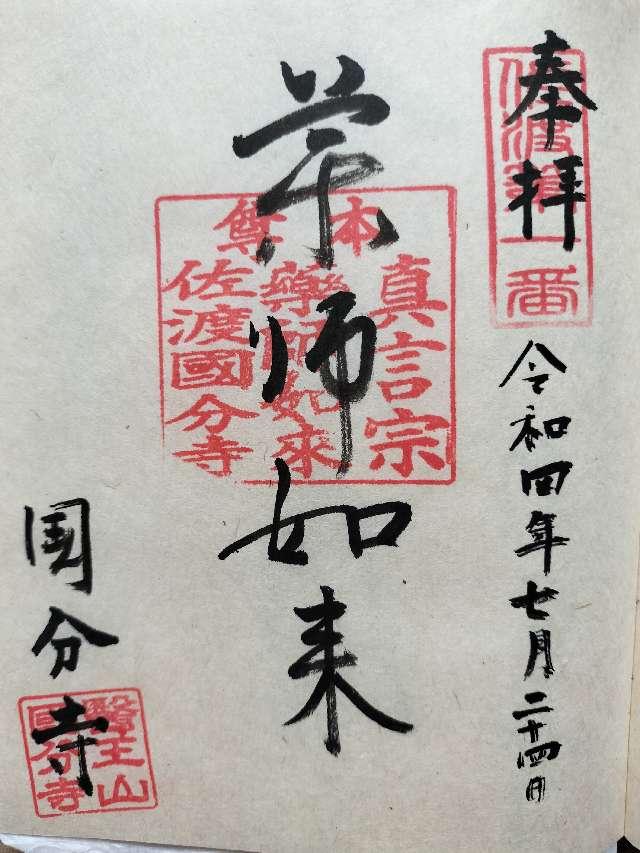 奉拝
佐渡第一番
令和四年七月二十四日
薬師如来
本尊
真言宗
藥師如來
佐渡國分寺
国分寺
醫王山
國分寺